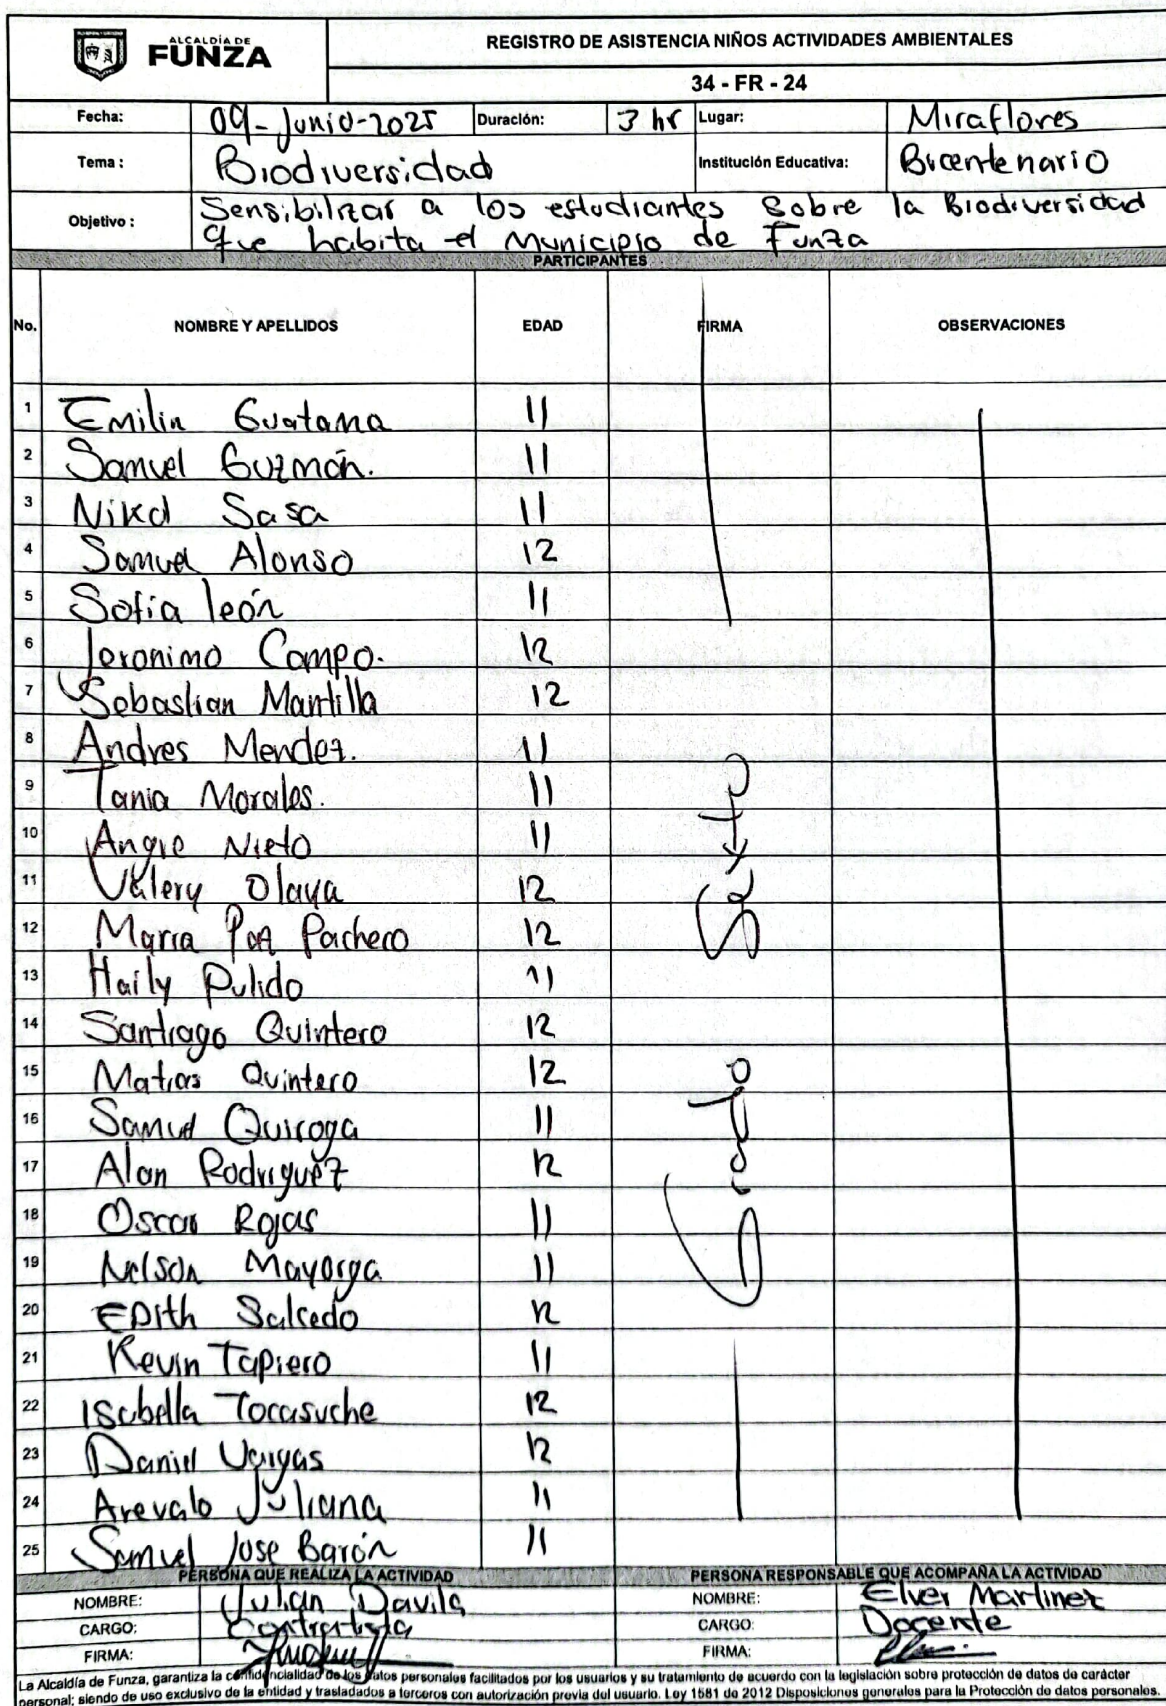 ALCALDÍA DE
FUNZA
REGISTRO DE ASISTENCIA NIÑOS ACTIVIDADES AMBIENTALES
34 - FR - 24
Fecha: 09-Junio-2025 Duración: 3 hr Lugar: Miraflores
Tema : Biodiversidad Institución Educativa: Bicentenario
Objetivo : Sensibilizar a los estudiantes sobre la Biodiversidad
que habita el Municipio de Funza
PARTICIPANTES
No. NOMBRE Y APELLIDOS EDAD FIRMA OBSERVACIONES
1 Emilin Guatama 11
2 Samuel Guzmán. 11
3 Nikol Sasa 11
4 Samuel Alonso 12
5 Sofia león 11
6 Jeronimo Campo. 12
7 Sebastian Mantilla 12
8 Andres Mendez. 11
9 Tania Morales. 11
10 Angie Nieto 11
11 Valery Olaya 12
12 Maria Paz Pacheco 12
13 Haily Pulido 11
14 Santiago Quintero 12
15 Matias Quintero 12
16 Samuel Quiroga 11
17 Alan Rodriguez 12
18 Oscar Rojas 11
19 Nelson Mayorga 11
20 Edith Salcedo 12
21 Kevin Tapiero 11
22 Isabella Tocasuche 12
23 Daniel Vargas 12
24 Arevalo Juliana 11
25 Samuel Jose Barón 11
Sexto
Grado
PERSONA QUE REALIZA LA ACTIVIDAD PERSONA RESPONSABLE QUE ACOMPAÑA LA ACTIVIDAD
NOMBRE: Julian Davila NOMBRE: Elver Martinez
CARGO: Contratista CARGO: Docente
FIRMA: FIRMA:
La Alcaldía de Funza, garantiza la confidencialidad de los datos personales facilitados por los usuarios y su tratamiento de acuerdo con la legislación sobre protección de datos de carácter
personal; siendo de uso exclusivo de la entidad y trasladados a terceros con autorización previa del usuario. Ley 1581 de 2012 Disposiciones generales para la Protección de datos personales.